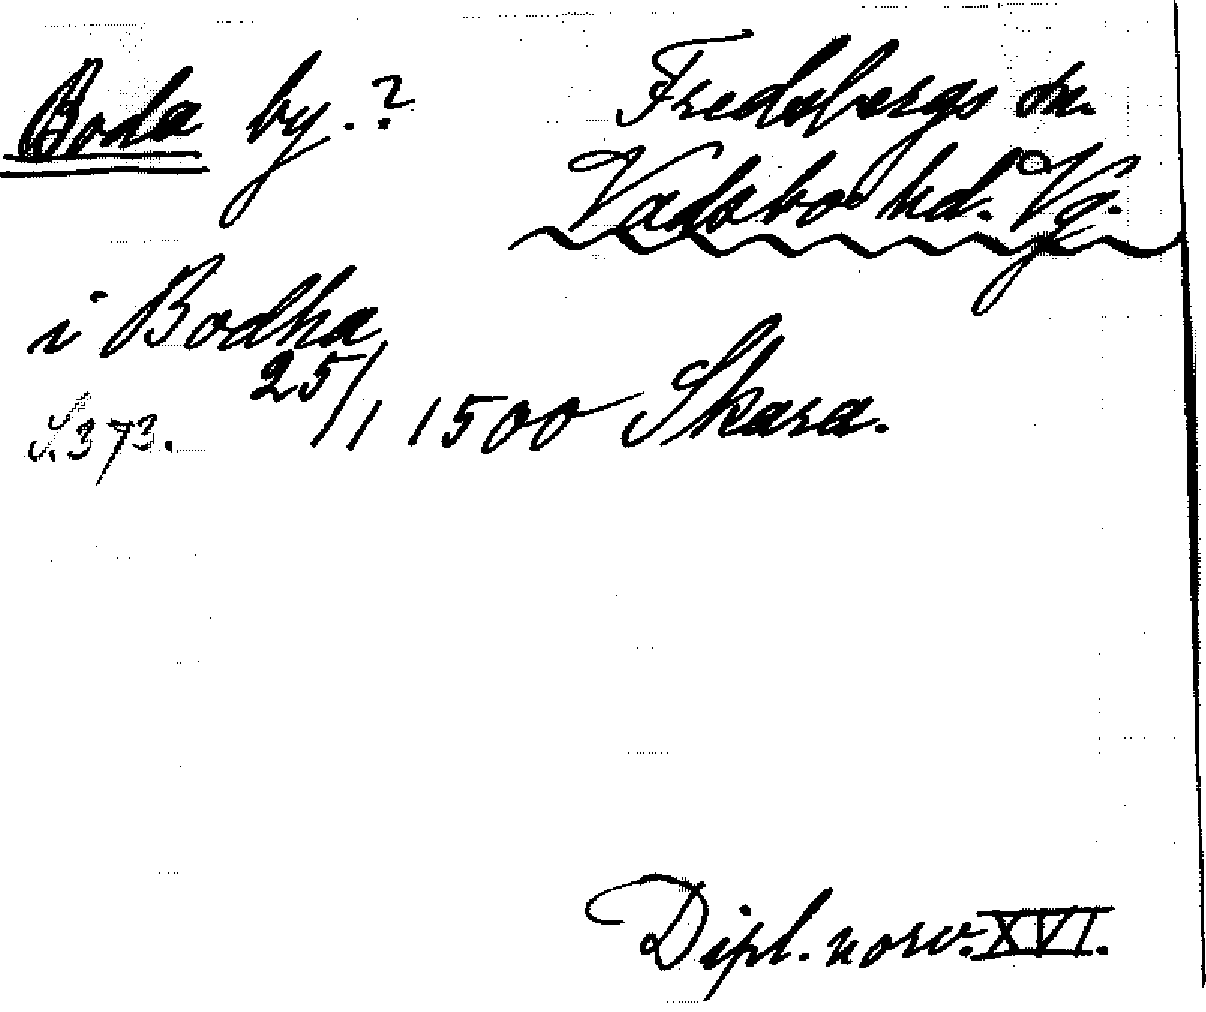 Boda by.? Fredsbergs sn.
Vadsbo hd. Vg.
i Bodha
25/1 1500 Skara.
S. 373.
Dipl. norv. XVI.